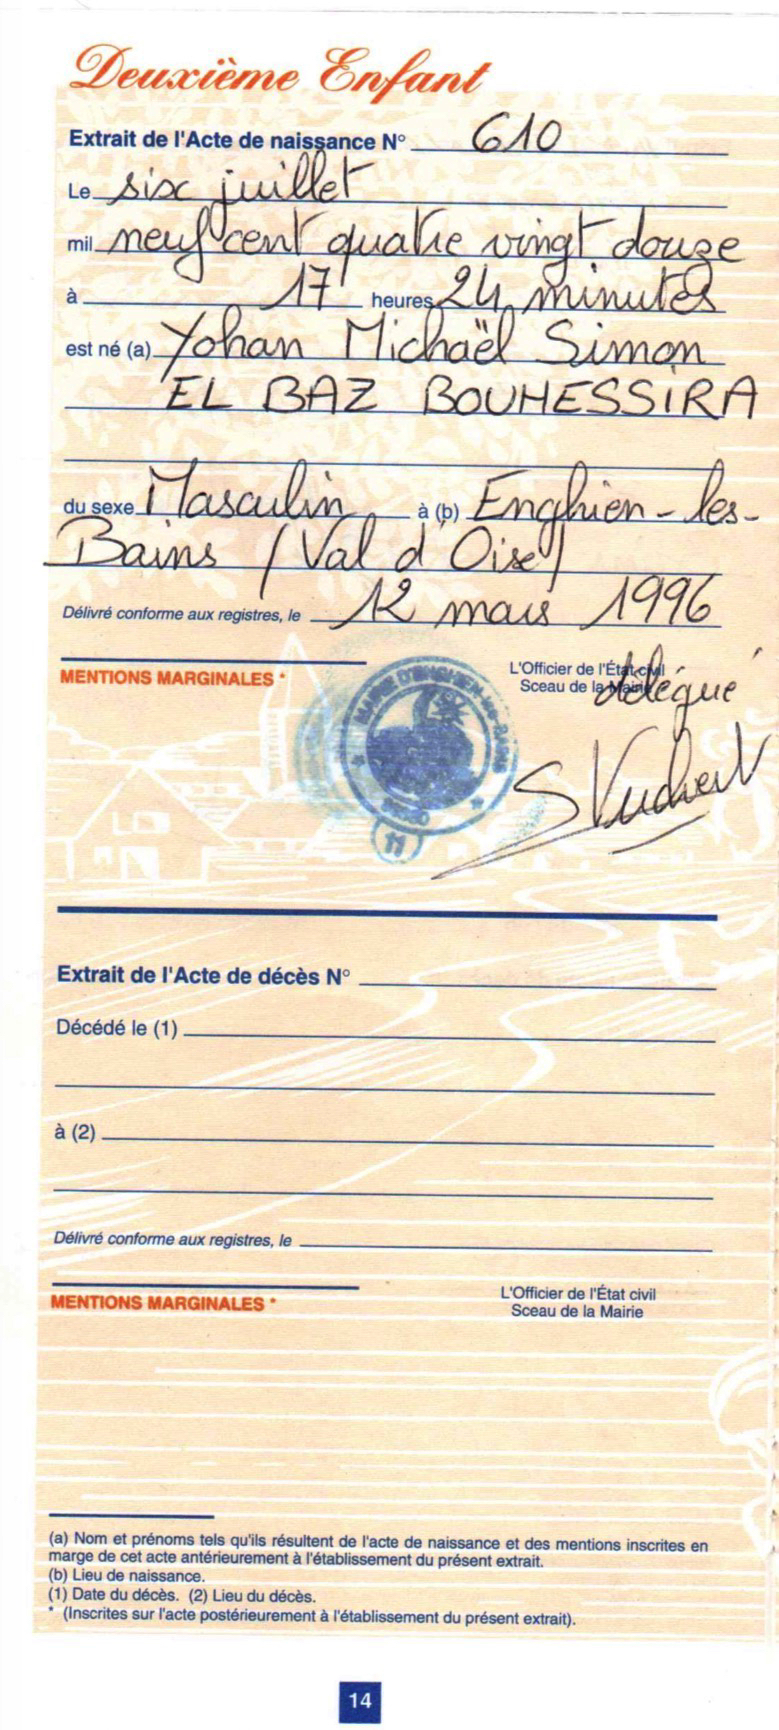 Deuxième Enfant
Extrait de l'Acte de naissance N° 610
Le six juillet
mil neuf cent quatre vingt douze
à 17 heures 24 minutes
est né (a) Yohan Michaël Simon
EL BAZ BOUHESSIRA
du sexe Masculin à (b) Enghien-les-
Bains (Val d'Oise)
Délivré conforme aux registres, le 12 mars 1996
MENTIONS MARGINALES *
L'Officier de l'État civil
Sceau de la Mairie
délégué
MAIRIE D'ENGHIEN-LES-BAINS
11
Extrait de l'Acte de décès N°
Décédé le (1)
à (2)
Délivré conforme aux registres, le
MENTIONS MARGINALES *
L'Officier de l'État civil
Sceau de la Mairie
(a) Nom et prénoms tels qu'ils résultent de l'acte de naissance et des mentions inscrites en
marge de cet acte antérieurement à l'établissement du présent extrait.
(b) Lieu de naissance.
(1) Date du décès. (2) Lieu du décès.
* (Inscrites sur l'acte postérieurement à l'établissement du présent extrait).
14